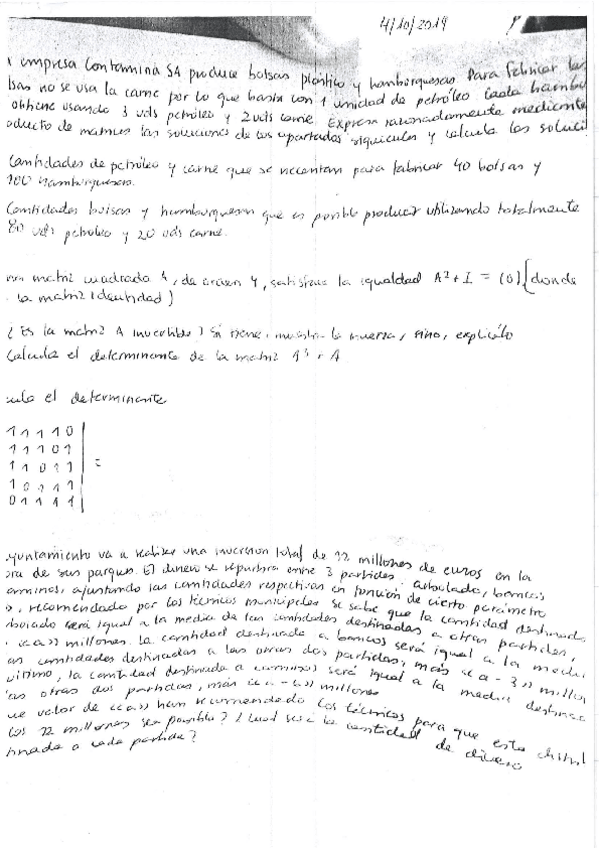 4/10/2019
empresa Contamina SA produce bolsas plástico y hamburguesas. Para fabricar las
bolsas no se usa la carne por lo que basta con 1 unidad de petróleo. Cada hambu
obtiene usando 3 uds petróleo y 2 uds carne. Expresa razonadamente mediante
oducto de matrices las soluciones de los apartados siguientes y calcula las soluci
Cantidades de petróleo y carne que se necesitan para fabricar 40 bolsas y
100 hamburguesas.
Cantidades bolsas y hamburguesas que es posible producir utilizando totalmente
80 uds petróleo y 20 uds carne.
una matriz cuadrada A, de orden 4, satisface la igualdad A² + I = (0) [donde
la matriz identidad)
¿Es la matriz A invertible? Si tiene, muestra la inversa, sino, explícalo
Calcula el determinante de la matriz A³ + A
cula el determinante
1 1 1 1 0
1 1 1 0 1
1 1 0 1 1 =
1 0 1 1 1
0 1 1 1 1
yuntamiento va a realizar una inversion total de 12 millones de euros en la
ora de sus parques. El dinero se repartira entre 3 partidas: arbolado, bancos
caminos, ajustando las cantidades respectivas en funcion de cierto parámetro
, recomendado por los técnicos municipales se sabe que la cantidad destinada
bolado será igual a la media de las cantidades destinadas a otras partidas,
<<a>> millones. La cantidad destinada a bancos será igual a la media
as cantidades destinadas a las otras dos partidas, más <<a-3>> millon
ultimo, la cantidad destinada a caminos será igual a la media destinac
las otras dos partidas, más
ue valor de <<a>> han recomendado los técnicos para que esta distrib
los 12 millones sea posible? ¿Cual será la cantidad de dinero
tinada a cada partida?